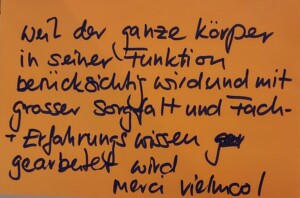 weil der ganze Körper
in seiner Funktion
berücksichtig wird und mit
grosser Sorgfalt und Fach-
+ Erfahrungswissen
gearbeitet wird
Merci vielmol